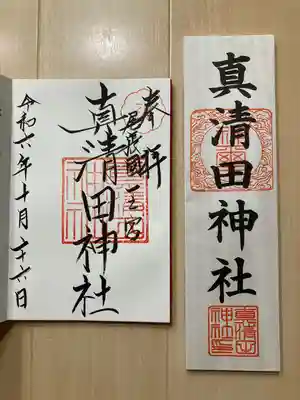 奉拝
尾張國一之宮
真清田神社
令和六年十月二十六日
真清田神社
真清田
神社印